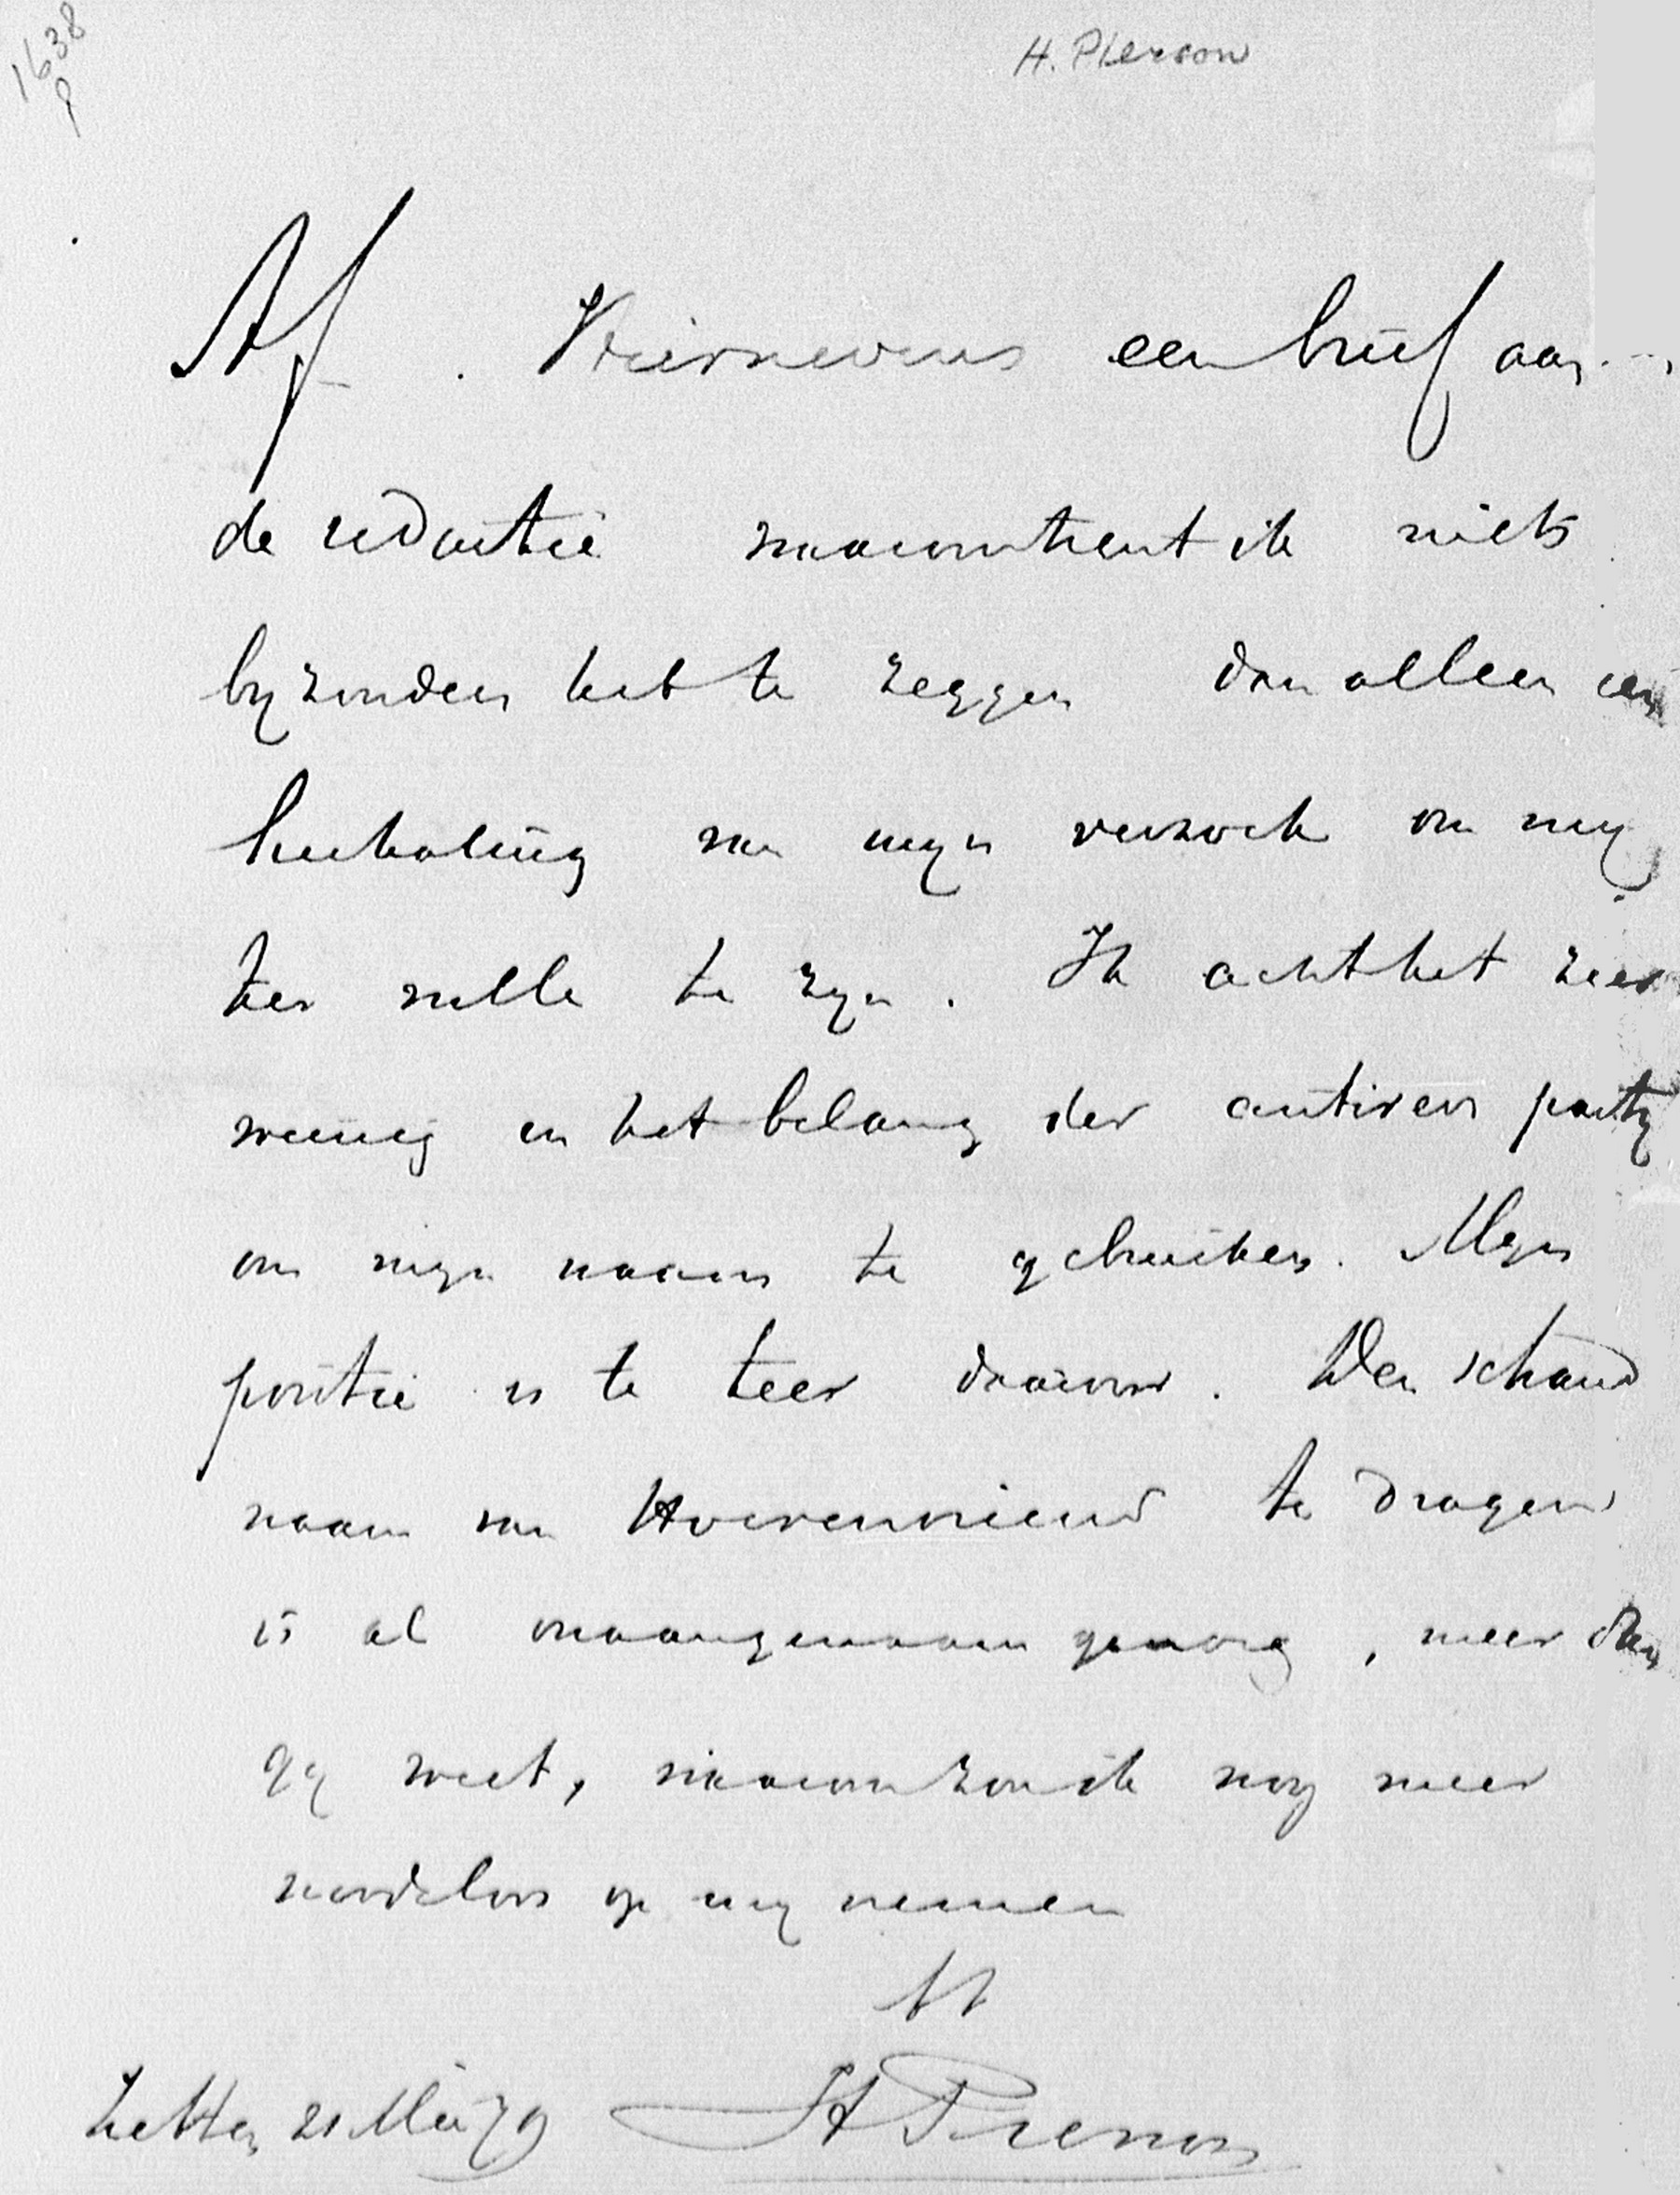 1638
P
H. Pierson
Af. Hiernevens een brief aan
de redactie waaromtrent ik niets
byzonders heb te zeggen dan alleen een
herhaling van myn verzoek om my
ter wille te zyn. Ik acht het zeer
weinig in het belang der antirev party
om myn naam te gebruiken. Myn
positie is te teer daarvoor. Den schand
naam van Hoerenvriend te dragen
is al onaangenaam genoeg, meer dan
gy weet, waarom zou ik nog meer
noodeloos op my nemen
tt
Zetten 21 Mei 79 H Pierson